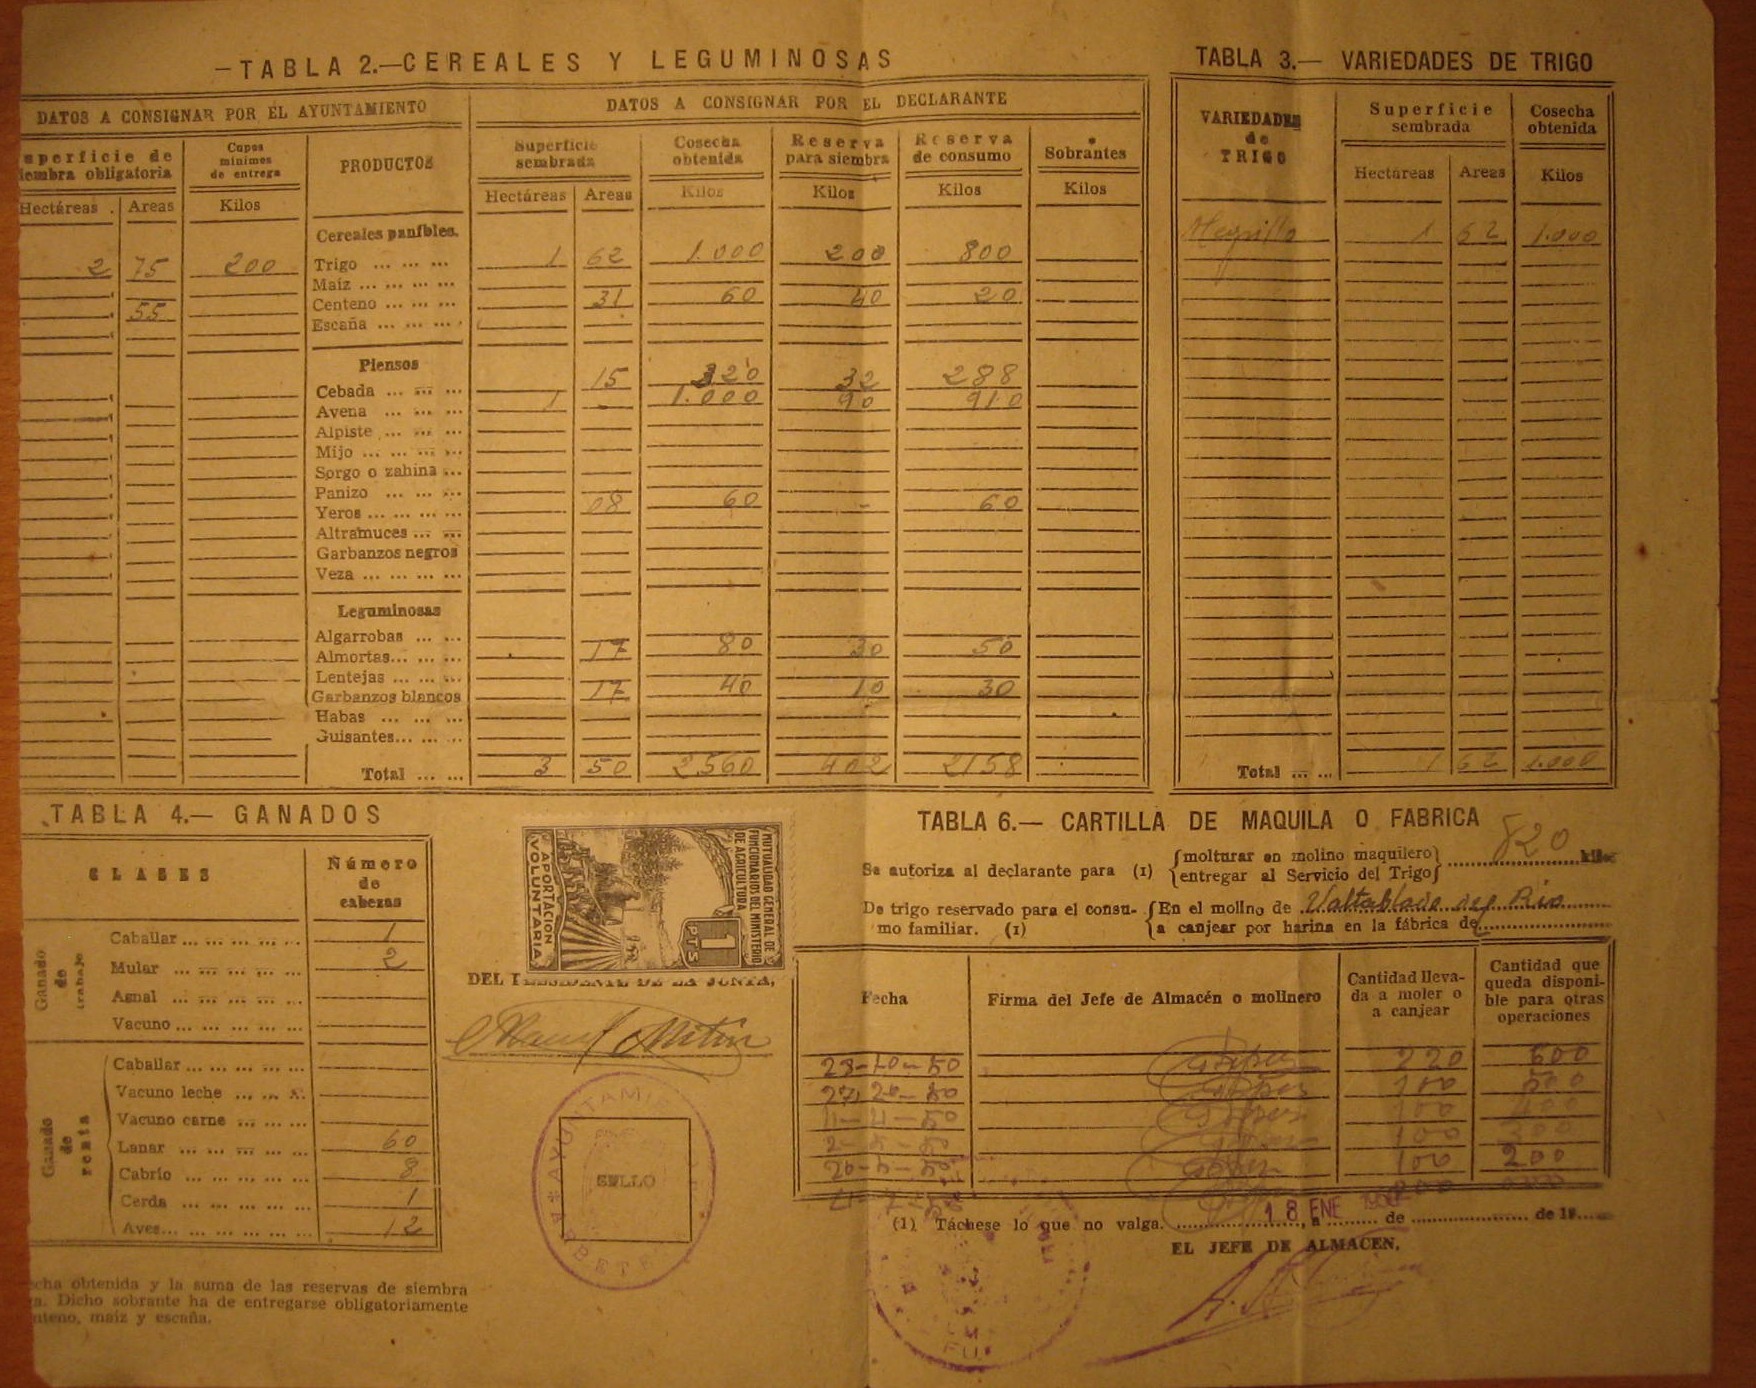 TABLA 2.—CEREALES Y LEGUMINOSAS
DATOS A CONSIGNAR POR EL AYUNTAMIENTO
DATOS A CONSIGNAR POR EL DECLARANTE
uperficie de
iembra obligatoria
Cupos
mínimos
de entrega
PRODUCTOS
Superficie
sembrada
Cosecha
obtenida
Reserva
para siembra
Reserva
de consumo
Sobrantes
Hectáreas Areas Kilos Hectáreas Areas Kilos Kilos Kilos Kilos
Cereales panibles.
2 75 200 Trigo ... ... ... 1 62 1.000 200 800
Maíz ... ... ... ...
55 Centeno ... ... ... 31 60 40 20
Escaña ... ... ...
Piensos
Cebada ... ... ... 15 320 32 288
Avena ... ... ... 1 - 1.000 90 910
Alpiste ... ... ...
Mijo ... ... ... ...
Sorgo o zahina ...
Panizo ... ... ...
Yeros ... ... ... ... 08 60 - 60
Altramuces ... ...
Garbanzos negros
Veza ... ... ... ...
Leguminosas
Algarrobas ... ...
Almortas... ... ... 17 80 30 50
Lentejas ... ... ...
Garbanzos blancos 17 40 10 30
Habas ... ... ...
Guisantes... ... ..
Total ... ... 3 50 2560 402 2158
TABLA 3.— VARIEDADES DE TRIGO
VARIEDADES
de
TRIGO
Superficie
sembrada
Cosecha
obtenida
Hectáreas Areas Kilos
1 62 1.000
Total ... ... 1 62 1.000
TABLA 4.— GANADOS
CLASES
Número
de
cabezas
Ganado
de
trabajo
Caballar ... ... ... ... ... 1
Mular ... ... ... ... ... 2
Asnal ... ... ... ... ...
Vacuno ... ... ... ... ...
Ganado
de
renta
Caballar ... ... ... ... ...
Vacuno leche ... ...
Vacuno carne ... ... ...
Lanar ... ... ... ... ... 60
Cabrío ... ... ... ... ... 8
Cerda ... ... ... ... ... 1
Aves... ... ... ... ... ... 12
cha obtenida y la suma de las reservas de siembra
a. Dicho sobrante ha de entregarse obligatoriamente
nteno, maíz y escaña.
MUTUALIDAD GENERAL DE
FUNCIONARIOS DEL MINISTERIO
DE AGRICULTURA
1
PTS
APORTACION
VOLUNTARIA
DE LA JUNTA,
SELLO
TABLA 6.— CARTILLA DE MAQUILA O FABRICA
Se autoriza al declarante para (1) {molturar en molino maquilero} 820 kilos
{entregar al Servicio del Trigo}
De trigo reservado para el consu- {En el molino de Valtablado del Rio
mo familiar. (1) {a canjear por harina en la fábrica de
Fecha
Firma del Jefe de Almacén o molinero
Cantidad lleva-
da a moler o
a canjear
Cantidad que
queda disponi-
ble para otras
operaciones
220 600
100 500
100 400
100 300
100 200
(1) Táchese lo que no valga. 18 ENE , a de de 19
EL JEFE DE ALMACEN,